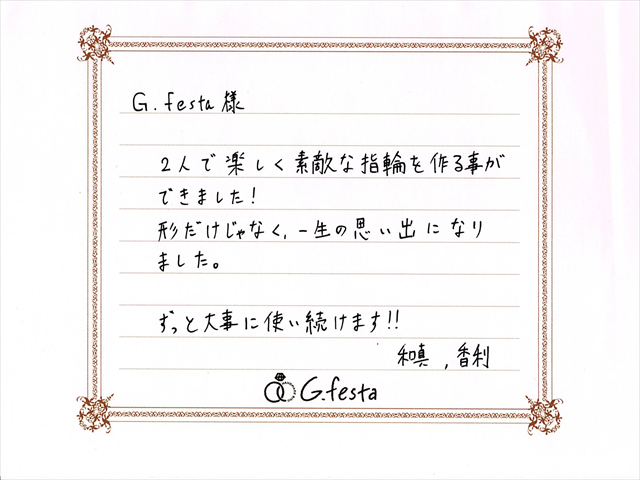 G.festa様
2人で楽しく素敵な指輪を作る事が
できました!
形だけじゃなく、一生の思い出になり
ました。
ずっと大事に使い続けます!!
和真 , 香利
G.festa